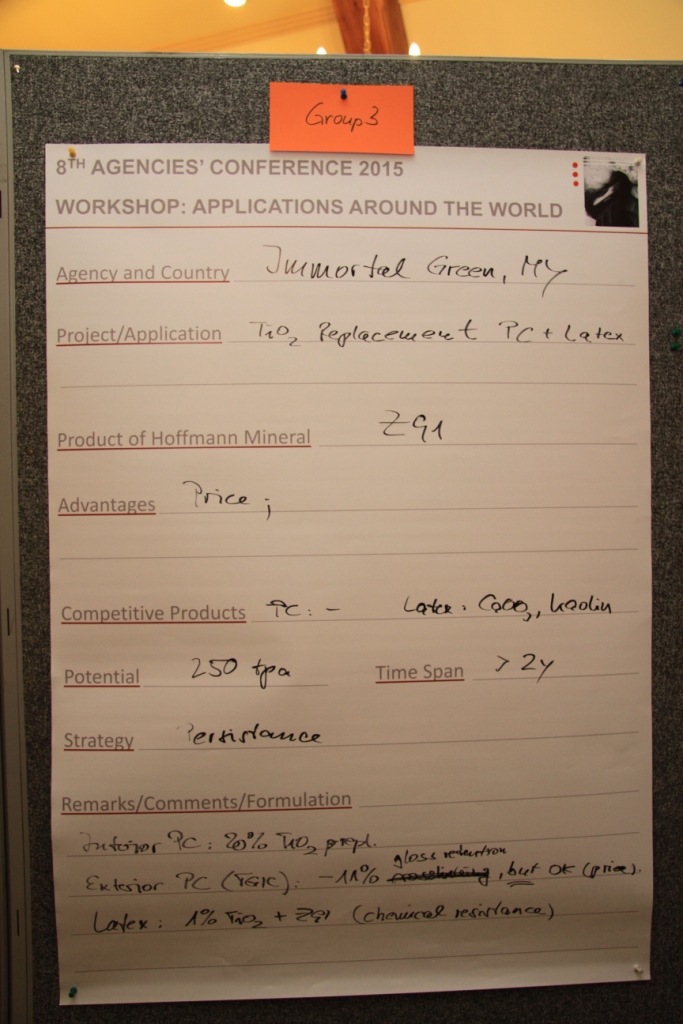 Group 3
8TH AGENCIES' CONFERENCE 2015
WORKSHOP: APPLICATIONS AROUND THE WORLD
Agency and Country Immortal Green, MY
Project/Application TiO2 Replacement PC + Latex
Product of Hoffmann Mineral Z91
Advantages Price ;
Competitive Products PC: - Latex: CaCO3, kaolin
Potential 250 tpa Time Span > 2y
Strategy Persistance
Remarks/Comments/Formulation
Interior PC: 20% TiO2 repl.
gloss reduction
Exterior PC (TGIC): -11% , but OK (price).
Latex: 1% TiO2 + Z91 (chemical resistance)